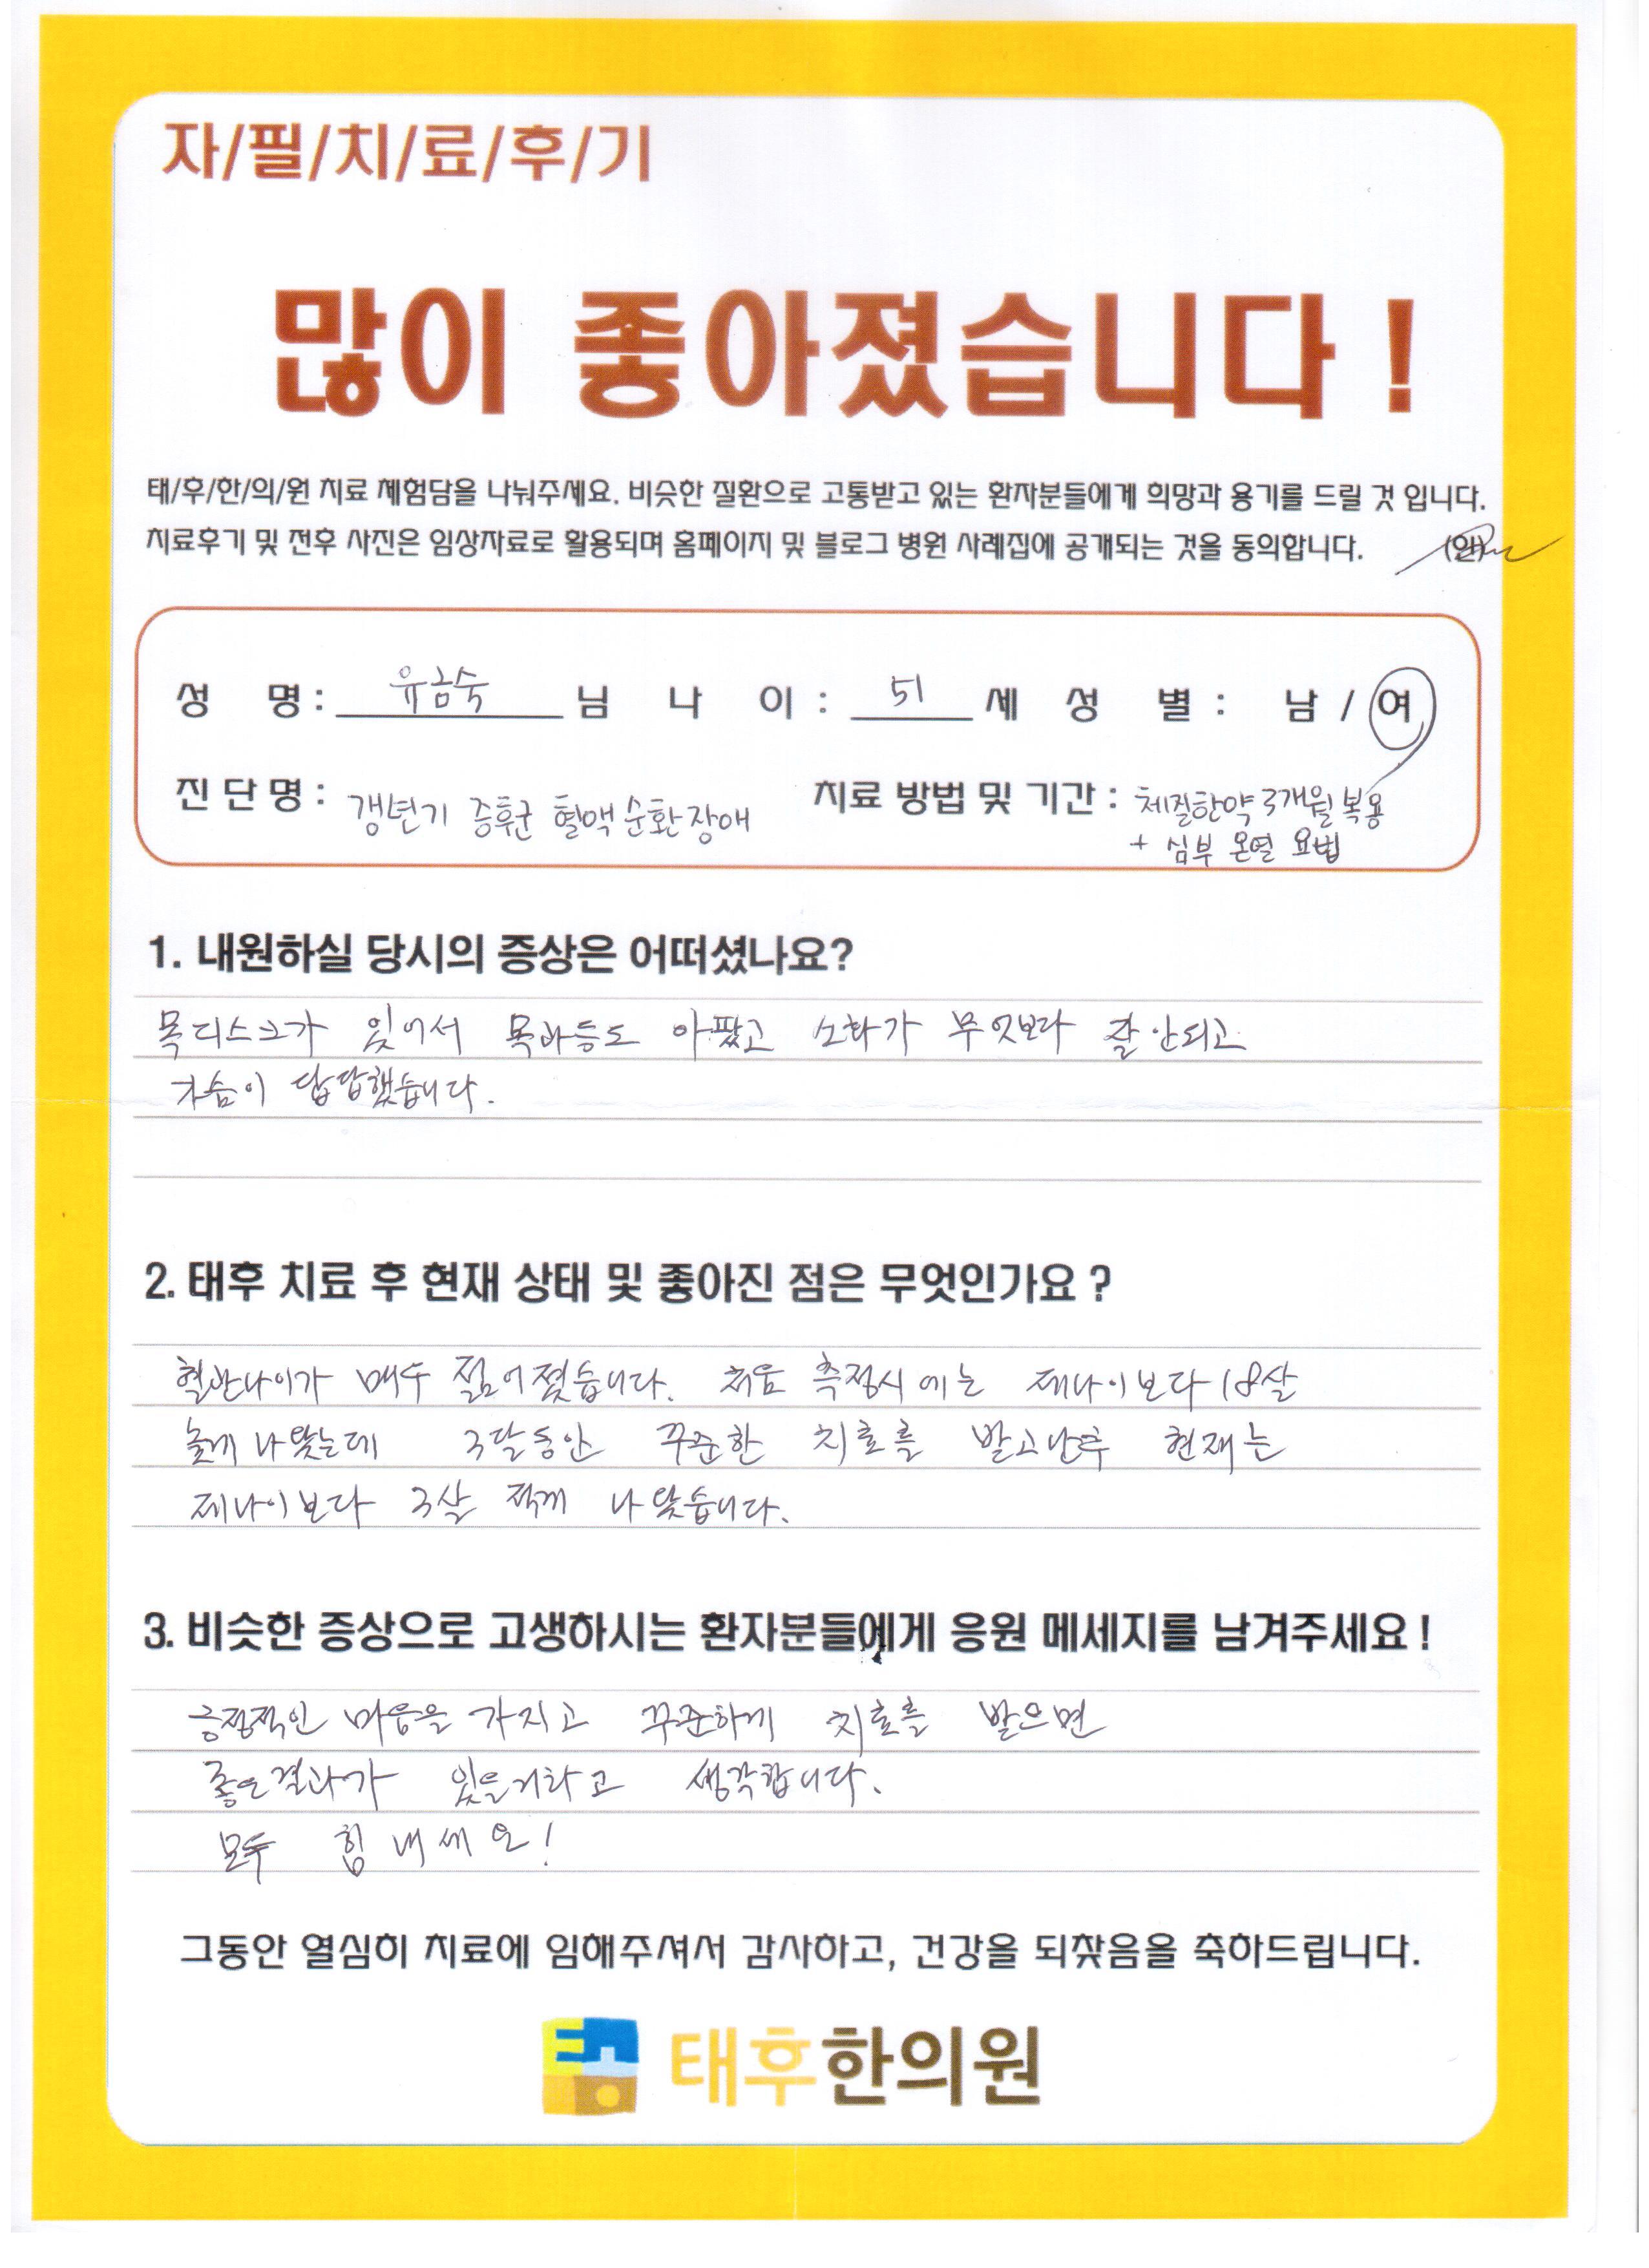 자/필/치/료/후/기
많이 좋아졌습니다 !
태/후/한/의/원 치료 체험담을 나눠주세요. 비슷한 질환으로 고통받고 있는 환자분들에게 희망과 용기를 드릴 것 입니다.
치료후기 및 전후 사진은 임상자료로 활용되며 홈페이지 및 블로그 병원 사례집에 공개되는 것을 동의합니다. (인)
성 명 : 유금숙 님 나 이 : 51 세 성 별 : 남 / 여
진 단 명 : 갱년기 증후군 혈액순환장애 치료 방법 및 기간 : 체질한약 3개월 복용
+ 심부 온열 요법
1. 내원하실 당시의 증상은 어떠셨나요?
목디스크가 있어서 목과등도 아팠고 소화가 무엇보다 잘 안되고
가슴이 답답했습니다.
2. 태후 치료 후 현재 상태 및 좋아진 점은 무엇인가요 ?
혈관나이가 매우 젊어졌습니다. 처음 측정시에는 제나이보다 18살
높게 나왔는데 3달동안 꾸준한 치료를 받고난후 현재는
제나이보다 3살 적게 나왔습니다.
3. 비슷한 증상으로 고생하시는 환자분들에게 응원 메세지를 남겨주세요 !
긍정적인 마음을 가지고 꾸준하게 치료를 받으면
좋은결과가 있을거라고 생각합니다.
모두 힘 내세요!
그동안 열심히 치료에 임해주셔서 감사하고, 건강을 되찾음을 축하드립니다.
태후한의원